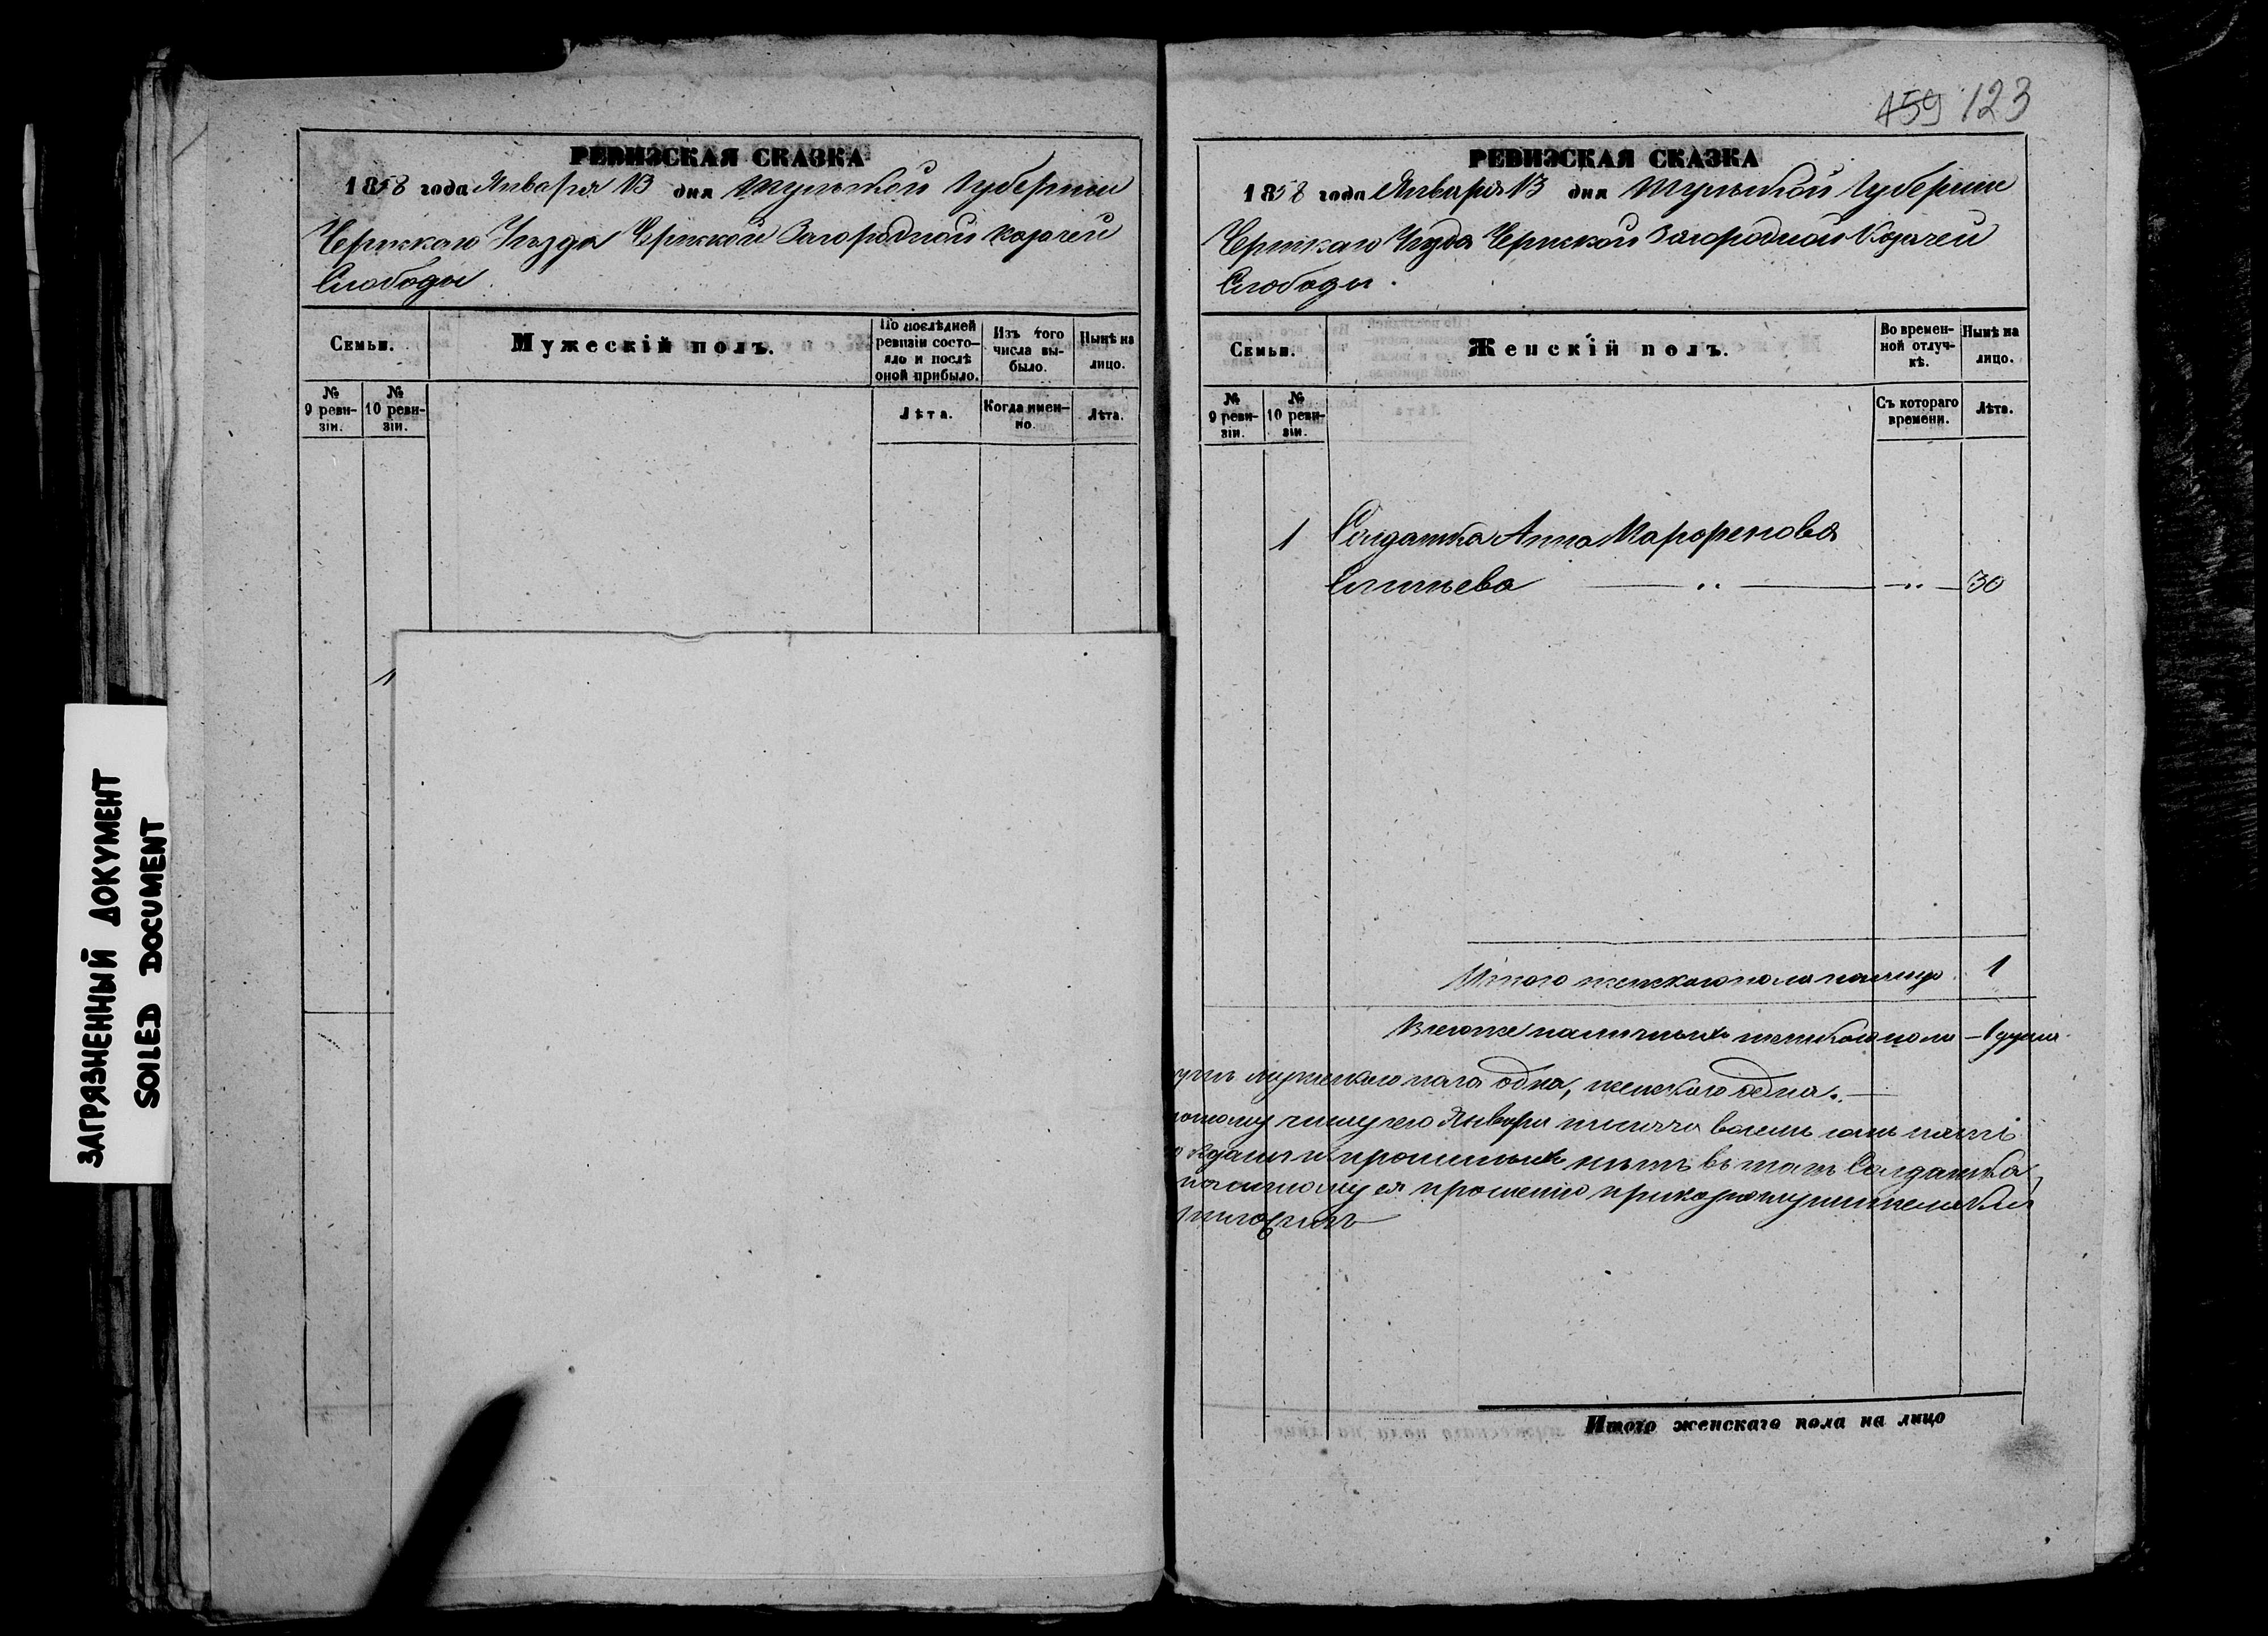 459 123
РЕВИЗСКАЯ СКАЗКА
1858 года Января 13 дня Тульской Губернии
Чернскаго Уѣзда Чернской Загородной Казачей
Слободы
Семьи.
Мужескій полъ.
По послѣдней ревизіи состояло и послѣ оной прибыло.
Изъ того числа выбыло.
Нынѣ на лицо.
№ 9 ревизіи.
№ 10 ревизіи.
Лѣта.
Когда именно.
Лѣта.
1
РЕВИЗСКАЯ СКАЗКА
1858 года Января 13 дня Тульской Губернии
Чернскаго Уѣзда Чернской Загородной Казачей
Слободы.
Семьи.
Женскій полъ.
Во временной отлучкѣ.
Нынѣ на лицо.
№ 9 ревизіи.
№ 10 ревизіи.
Съ котораго времени.
Лѣта.
1 Солдатка Анна
30
Итого женскаго пола на лицо 1
наличныхъ женскаго пола – 1 душа.
мужескаго пола одна, женскаго одна. —
числу сего Января тысяча восемь сотъ
и прописныхъ нѣтъ въ томъ Солдатка
ея прошенію
Итого женскаго пола на лицо
ЗАГРЯЗНЕННЫЙ ДОКУМЕНТ
SOILED DOCUMENT